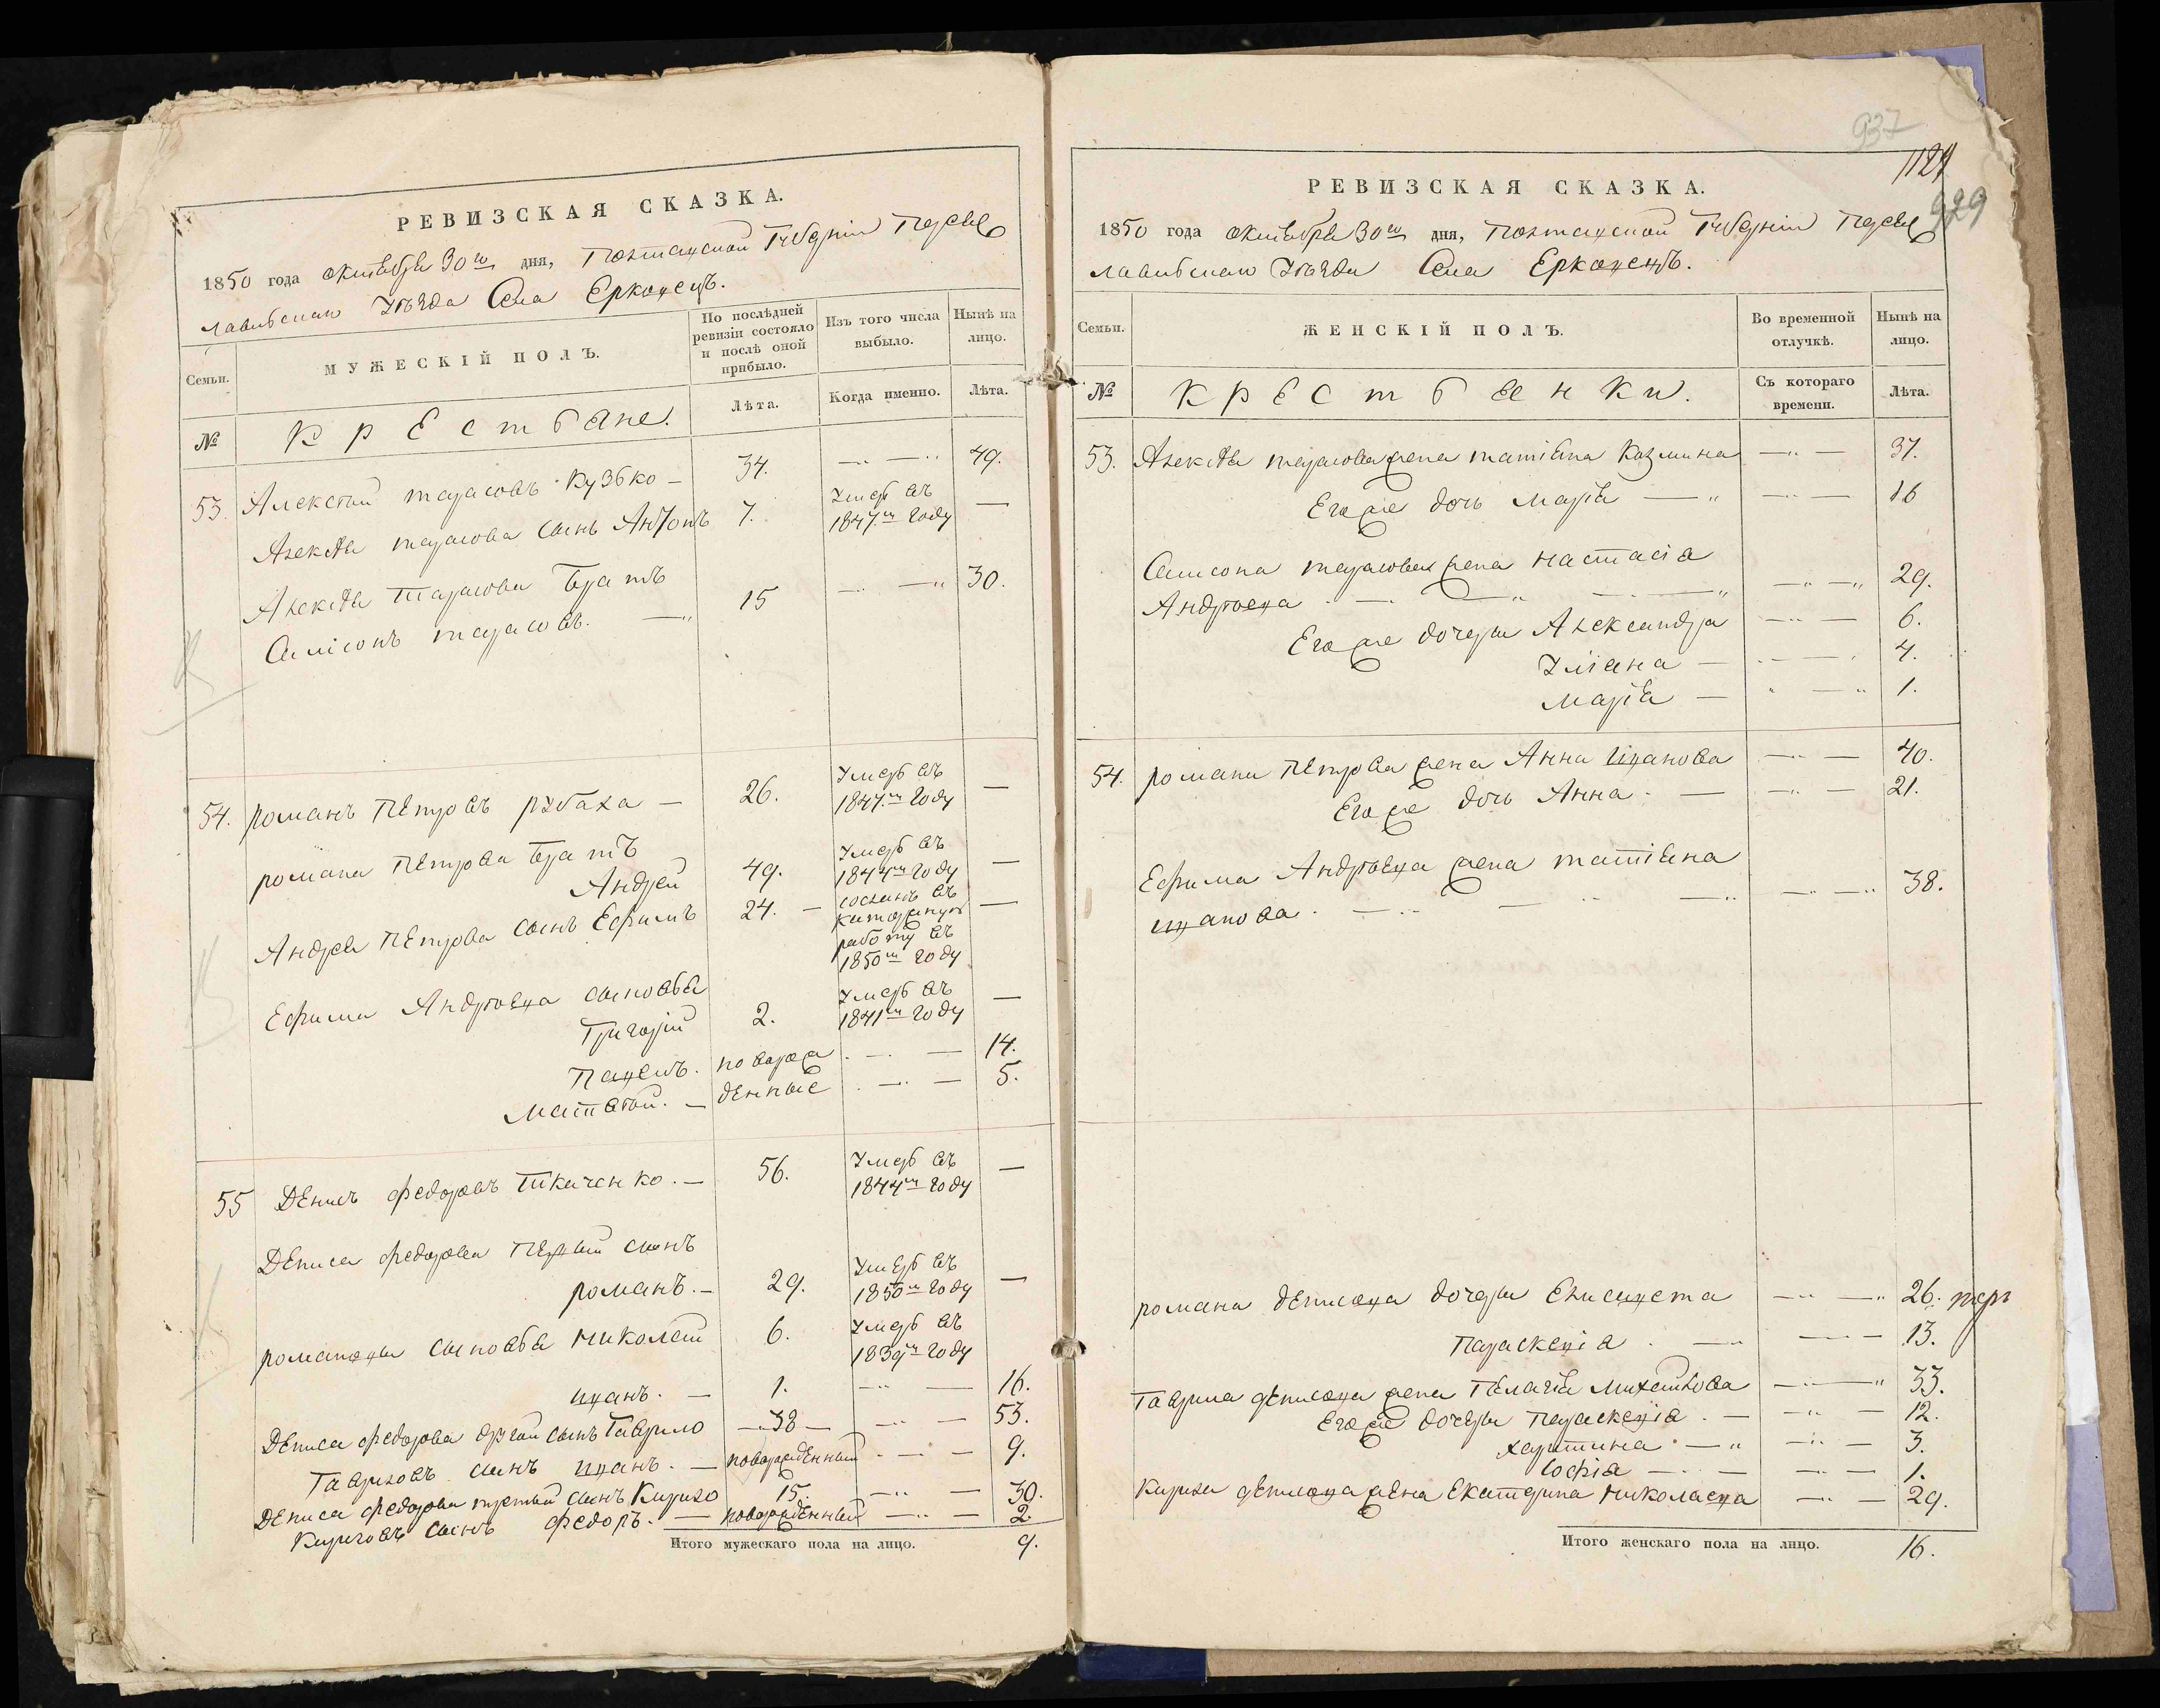 РЕВИЗСКАЯ СКАЗКА.
1850 года октября 30го дня, Полтавской Губерніи Переяс
лавскаго Уѣзда Села Ерковецъ.
Семьи.
МУЖЕСКІЙ ПОЛЪ.
По послѣдней ревизіи состояло и послѣ оной прибыло.
Изъ того числа выбыло.
Нынѣ на лицо.
№
Крестьяне.
Лѣта.
Когда именно.
Лѣта.
53. Алексѣй Тарасовъ Кузько — 34. — — 49.
Алексѣя Тарасова сынъ Антонъ 7. Умеръ въ 1847м году —
Алексѣя Тарасова братъ
Самсонъ Тарасовъ. — 15 — — 30.
54. Романъ Петровъ Рубаха — 26. Умеръ въ 1847м году —
Романа Петрова братъ
Андрей 49. Умеръ въ 1844м году —
Андрея Петрова сынъ Ефимъ 24. — сосланъ въ каторжную работу въ 1850м году —
Ефима Андреева сыновья
Григорій 2. Умеръ въ 1841м году —
Павелъ. новорож — — 14.
Матвѣй. — денные — — 5.
55 Денисъ Федоровъ Ткаченко. — 56. Умеръ въ 1844м году —
Дениса Федорова первый сынъ
Романъ. — 29. Умеръ въ 1850м году —
Романовы сыновья Николай 6. Умеръ въ 1839м году
Иванъ. — 1. — — 16.
Дениса Федорова другой сынъ Гаврило — 38 — — — 53.
Гавриловъ сынъ Иванъ. — новорожденный — — 9.
Дениса Федорова третій сынъ Кирило 15. — — 30.
Кириловъ сынъ Федоръ. — новорожденный — — 2.
Итого мужескаго пола на лицо. 9.
937
1124
929
РЕВИЗСКАЯ СКАЗКА.
1850 года октября 30го дня, Полтавской Губерніи Переяс
лавскаго Уѣзда Села Ерковецъ.
Семьи.
ЖЕНСКІЙ ПОЛЪ.
Во временной отлучкѣ.
Нынѣ на лицо.
№
Крестьянки.
Съ котораго времени.
Лѣта.
53. Алексѣя Тарасова жена Татіяна Козмина — — 37.
Его же дочь Марія — — — 16
Самсона Тарасова жена Настасія
Андреева — — — — — 29.
Его же дочери Александра — — 6.
Уліана — — — 4.
Марія — — — 1.
54. Романа Петрова жена Анна Иванова — — 40.
Его же дочь Анна. — — — 21.
Ефима Андреева жена Татіяна
Иванова. — — — — — 38.
Романа Денисова дочери Елисавета — — 26.
Параскевія — — — 13.
Гаврила Денисова жена Пелагія Михайлова — — 33.
Его же дочери Параскевія. — — — 12.
Харитина — — — 3.
Софія — — — 1.
Кирила Денисова жена Екатерина Николаева — — 29.
Итого женскаго пола на лицо. 16.